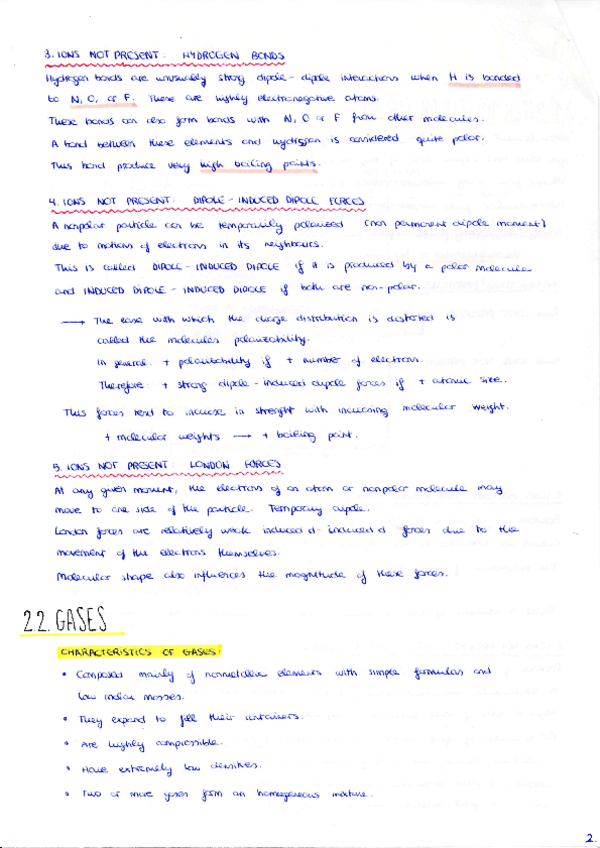 3. IONS NOT PRESENT: HYDROGEN BONDS
Hydrogen bonds are unusually strong dipole-dipole interactions when H is bonded
to N, O, or F. These are highly electronegative atoms.
These bonds can also form bonds with N, O or F from other molecules.
A bond between these elements and hydrogen is considered quite polar.
This bond produce very high boiling points.
4. IONS NOT PRESENT: DIPOLE-INDUCED DIPOLE FORCES
A nonpolar particle can be temporarily polarized (non permanent dipole moment)
due to motions of electrons in its neighbours.
This is called DIPOLE-INDUCED DIPOLE if it is produced by a polar molecule
and INDUCED DIPOLE-INDUCED DIPOLE if both are non-polar.
→ The ease with which the charge distribution is distorted is
called the molecules polarizability.
In general: + polarizability if + number of electrons.
Therefore: + strong dipole-induced dipole forces if + atomic size.
This forces tend to increase in strenght with increasing molecular weight.
+ molecular weights → + boiling point.
5. IONS NOT PRESENT: LONDON FORCES
At any given moment, the electrons of an atom or nonpolar molecule may
move to one side of the particle. Temporary dipole.
London forces are relatively weak induced d-induced d forces due to the
movement of the electrons themselves.
Molecular shape also influences the magnitude of these forces.
2.2. GASES
CHARACTERISTICS OF GASES:
• Composed mainly of nonmetallic elements with simple formulas and
low molar masses.
• They expand to fill their containers.
• Are highly compressible.
• Have extremely low densities.
• Two or more gases form an homogeneous mixture.
2.